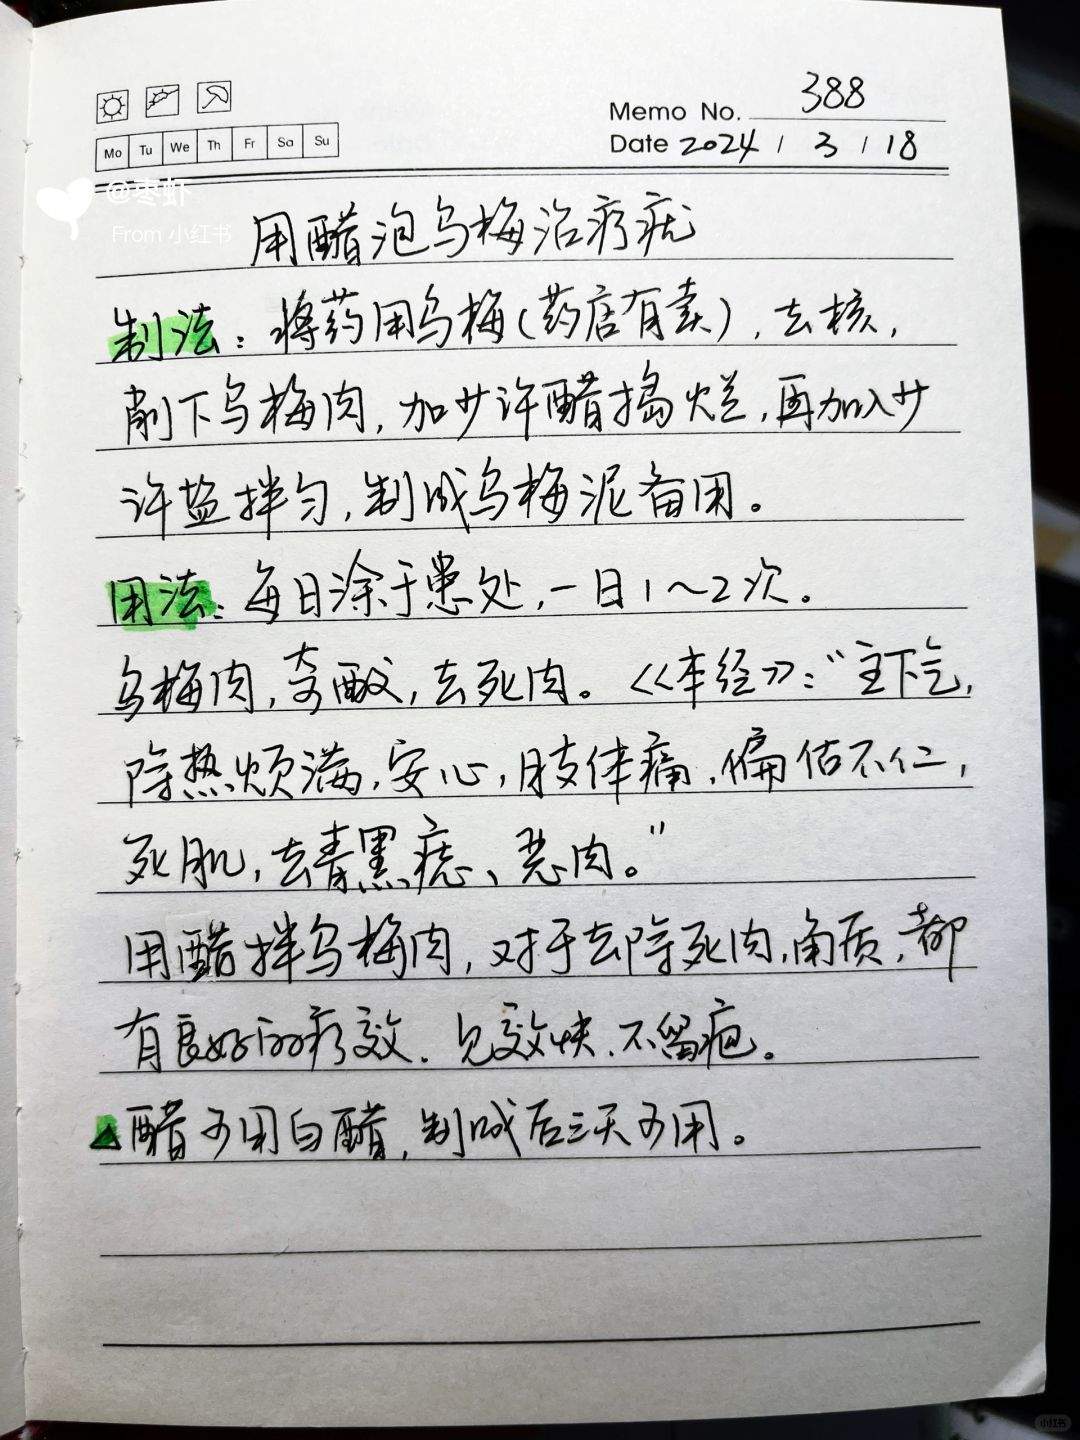 Memo No. 388
Mo Tu We Th Fr Sa Su
Date 2024 / 3 / 18
@枣虾
From 小红书
用醋泡乌梅治疗疣
制法：将药用乌梅（药店有卖），去核，
削下乌梅肉，加少许醋捣烂，再加入少
许盐拌匀，制成乌梅泥备用。
用法：每日涂于患处，一日1～2次。
乌梅肉，奇酸，去死肉。《本经》："主下气，
除热烦满，安心，肢体痛，偏估不仁，
死肌，去青黑痣、恶肉。"
用醋拌乌梅肉，对于去除死肉，角质，都
有良好的疗效．见效快．不留疤。
▲醋可用白醋，制成后三天可用。
小红书